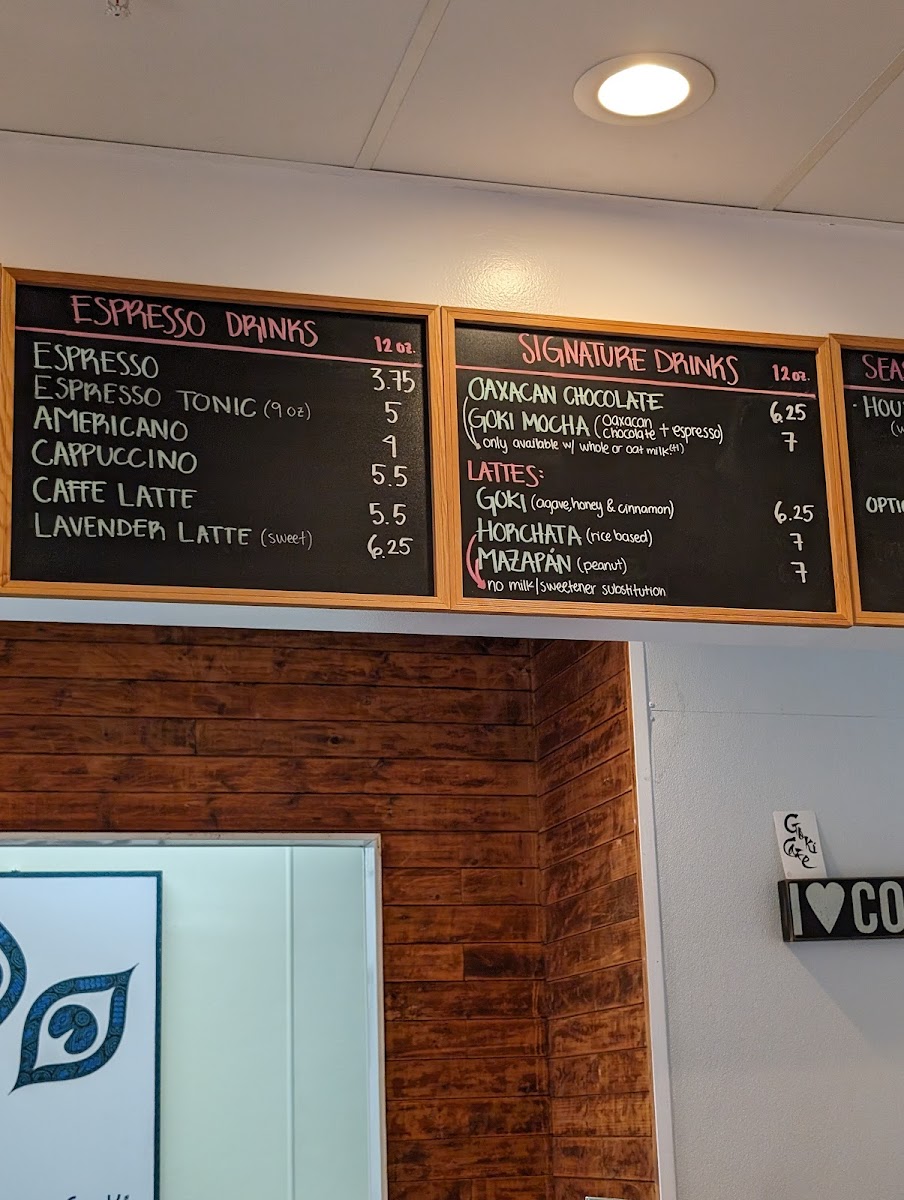 ESPRESSO DRINKS 12 oz.
ESPRESSO 3.75
ESPRESSO TONIC (9 oz) 5
AMERICANO 4
CAPPUCCINO 5.5
CAFFE LATTE 5.5
LAVENDER LATTE (sweet) 6.25
SIGNATURE DRINKS 12 oz.
OAXACAN CHOCOLATE 6.25
GOKI MOCHA (oaxacan chocolate + espresso) 7
only available w/ whole or oat milk (+1)
LATTES:
GOKI (agave, honey & cinnamon) 6.25
HORCHATA (rice based) 7
MAZAPÁN (peanut) 7
no milk/sweetener substitution
SEAS
HOU
(w
OPTIO
Goki
Cafe
I ♥ CO